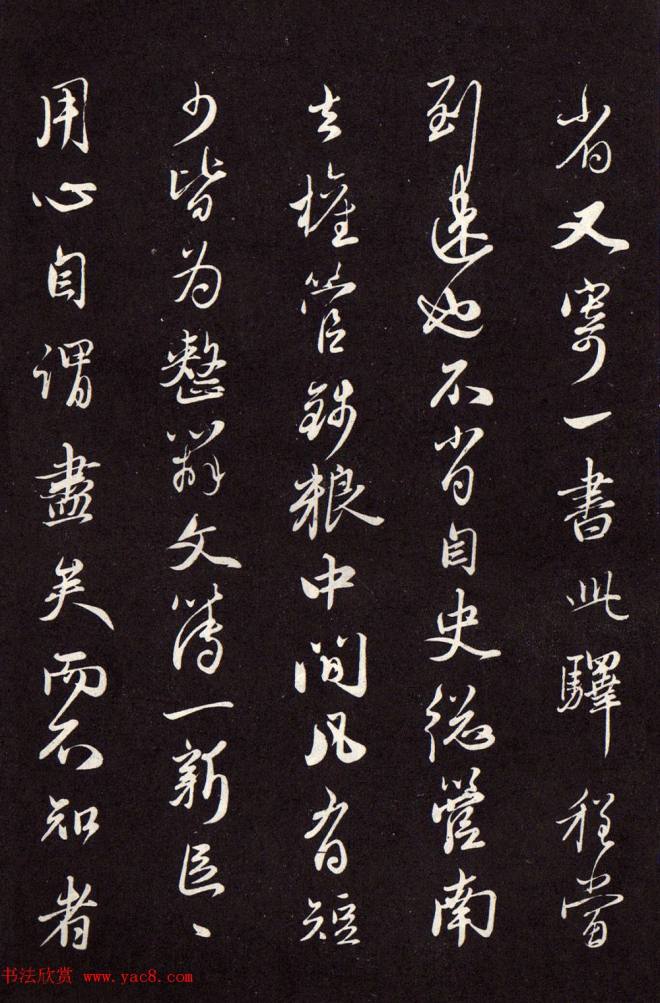 省又寄一書此驛程當
到速也不省自史總管南
去權管錢粮中間凡有短
少皆为整辦文簿一新臣〻
用心自謂盡矣而不知者
书法欣赏 www.yac8.com